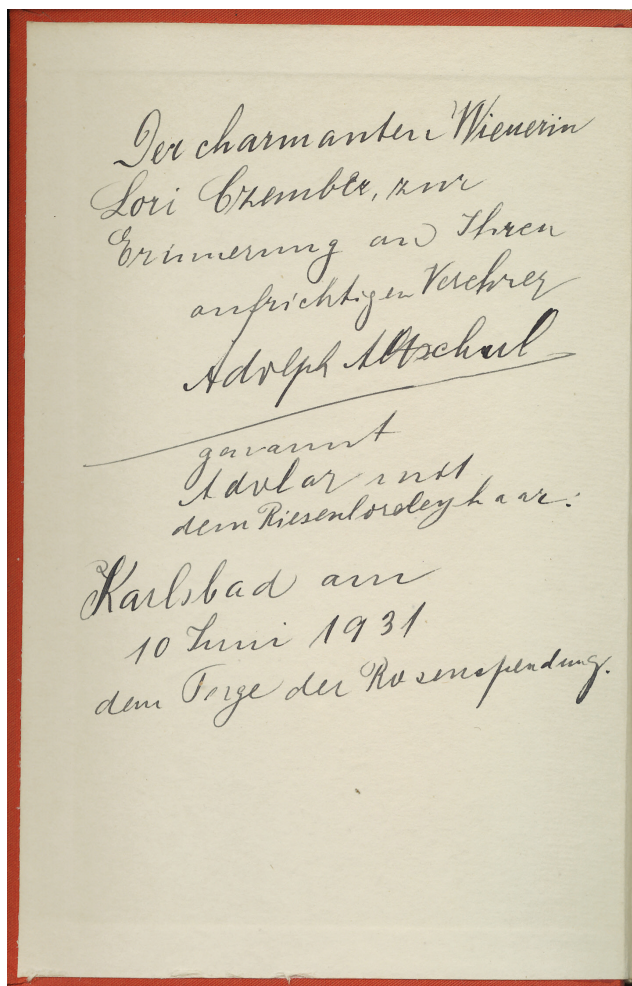 Der charmanten Wienerin
Lori Czember, zur
Erinnerung an Ihren
aufrichtigen Verehrer
Adolph Altschul
genannt
Adolar mit
dem Riesenloreleyhaar.
Karlsbad am
10 Juni 1931
dem Tage der Rosenspendung.